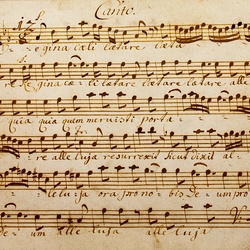 Canto.
egina cæli lætare læta
re Regina cæli lætare lætare alle
quia quia quem meruisti porta
re alleluja resurrexit sicut dixit al
leluja ora pro nobis deum pro
de um alle luja alle luja